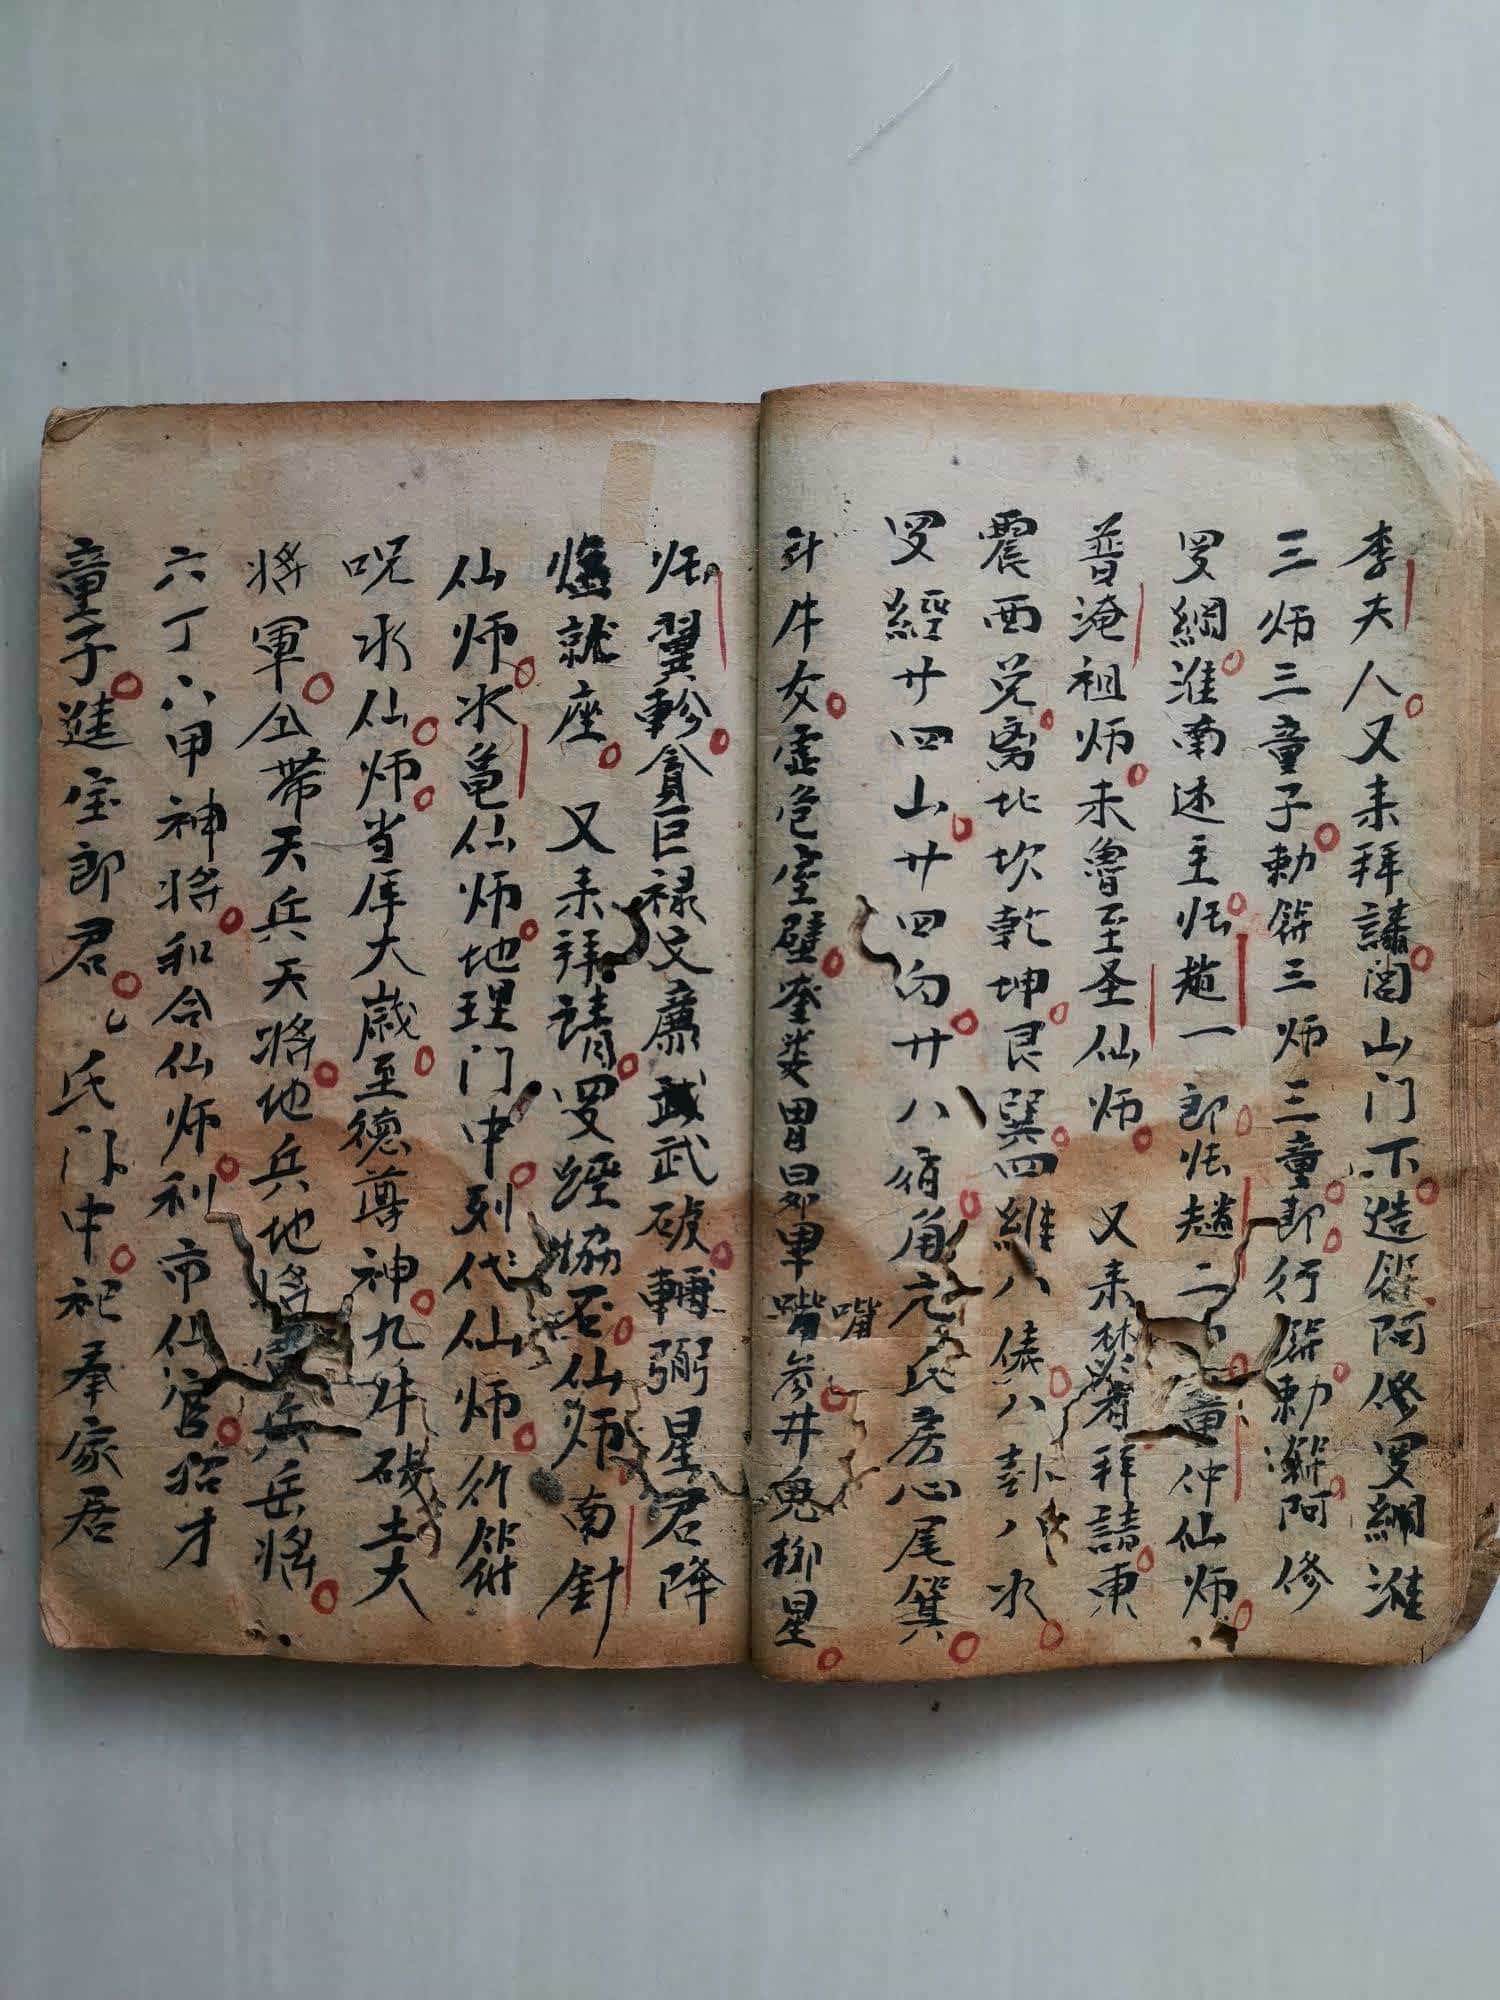 李夫人又来拜請閭山门下造符阿修罗綱淮
三师三童子勅符三师三童郎行符勅符阿修
罗綱淮南述主張趙一郎張趙二童仲仙师
普淹祖师未魯至圣仙师又来焚香拜請東
震西兌离北坎乾坤艮巽四維八儀八卦八水
罗經廿四山廿四向廿八宿角亢氏房心尾箕
斗牛女虚危室壁奎娄胃昴畢嘴嘴参井鬼柳星
張翼軫貪巨禄文廉武破輔弼星君降
爐就座又来拜請罗經協石仙师南針
仙师水亀仙师地理门中列代仙师符
呪水仙师当年大歲至德尊神九牛破土大
将軍仝带天兵天将地兵地将兵岳将
六丁六甲神将和合仙师利市仙官招才
童子進宝郎君氏门中祀奉家居